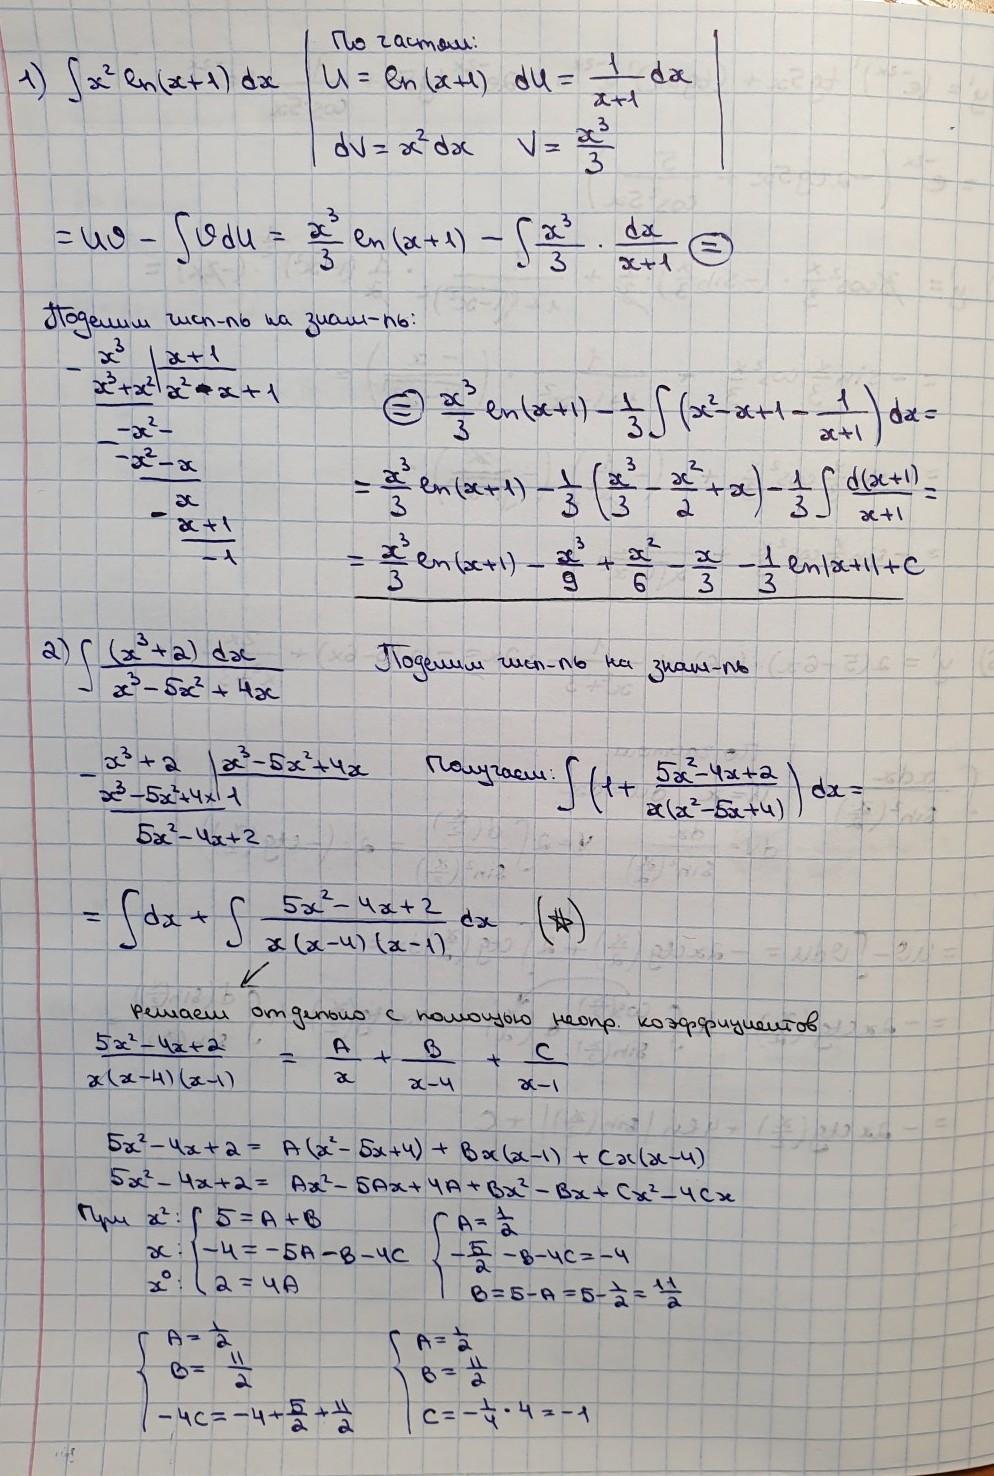 По частям:
1) ∫x² ln(x+1) dx | U = ln(x+1) dU = 1/(x+1) dx
dV = x² dx V = x³/3
= UV − ∫VdU = x³/3 ln(x+1) − ∫x³/3 · dx/(x+1) (=)
Поделим числ-ль на знам-ль:
− x³ | x+1
x³+x² | x² - x +1
− -x² -
-x² - x
− x
x+1
-1
(=) x³/3 ln(x+1) − 1/3 ∫(x² - x + 1 - 1/(x+1)) dx =
= x³/3 ln(x+1) − 1/3 (x³/3 − x²/2 + x) − 1/3 ∫ d(x+1)/(x+1) =
= x³/3 ln(x+1) − x³/9 + x²/6 − x/3 − 1/3 ln|x+1| + C
2) ∫ (x³+2) dx/(x³ − 5x² + 4x) Поделим числ-ль на знам-ль
− x³ + 2 | x³ − 5x² + 4x
x³ − 5x² + 4x | 1
5x² − 4x + 2
Получаем: ∫(1 + (5x² − 4x + 2)/(x(x² − 5x + 4))) dx =
= ∫dx + ∫ (5x² − 4x + 2)/(x(x−4)(x−1)) dx (☆)
решаем отдельно с помощью неопр. коэффициентов
(5x² − 4x + 2)/(x(x−4)(x−1)) = A/x + B/(x−4) + C/(x−1)
5x² − 4x + 2 = A(x² − 5x + 4) + Bx(x−1) + Cx(x−4)
5x² − 4x + 2 = Ax² − 5Ax + 4A + Bx² − Bx + Cx² − 4Cx
При x²: { 5 = A + B { A = 1/2
x: −4 = −5A − B − 4C −5/2 − B − 4C = −4
x⁰: 2 = 4A B = 5 − A = 5 − 1/2 = 11/2
{ A = 1/2 { A = 1/2
B = 11/2 B = 11/2
−4C = −4 + 5/2 + 11/2 C = −1/4 · 4 = −1